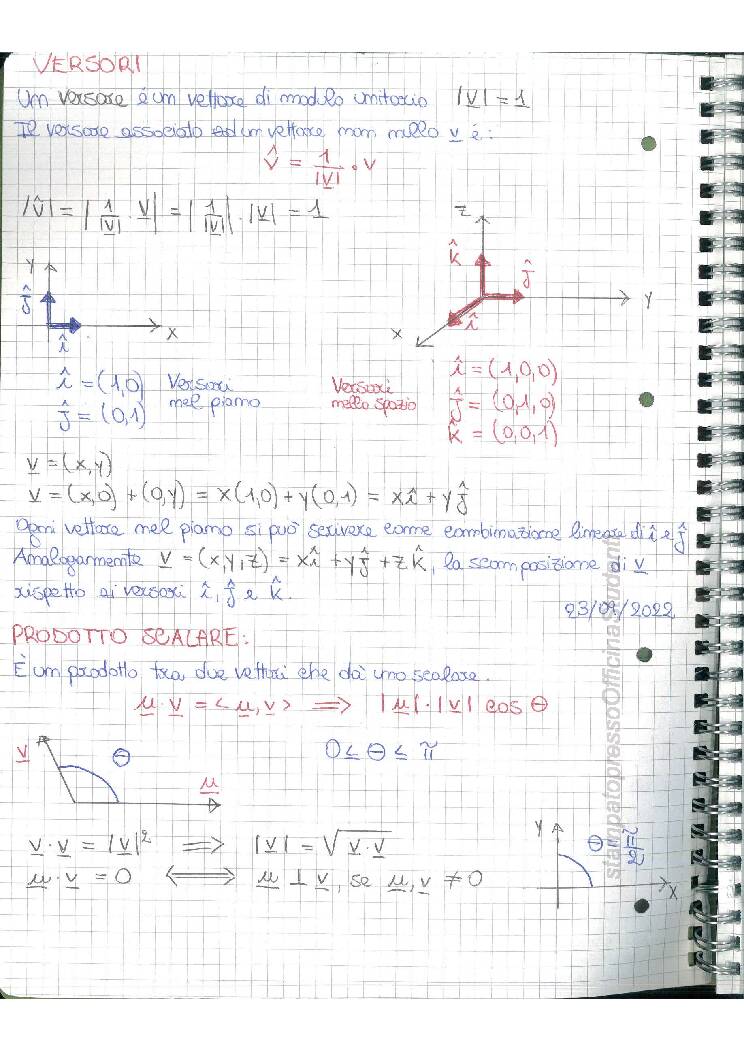 VERSORI
Un versore é un vettore di modulo unitario |v| = 1
Il versore associato ad un vettore non nullo v è:
v̂ = 1/|v| · v
|v̂| = |1/|v| · v| = |1/|v|| · |v| = 1
Y
ĵ
î
X
Z
k̂
ĵ
î
Y
X
î = (1,0) Versori
ĵ = (0,1) nel piano
Versori
nello spazio
î = (1,0,0)
ĵ = (0,1,0)
k̂ = (0,0,1)
v = (x,y)
v = (x,0) + (0,y) = x(1,0) + y(0,1) = xî + yĵ
Ogni vettore nel piano si può scrivere come combinazione lineare di î e ĵ
Analogamente v = (x,y,z) = xî + yĵ + zk̂, la scomposizione di v
rispetto ai versori î, ĵ e k̂.
23/09/2022
PRODOTTO SCALARE:
È un prodotto tra due vettori che dà uno scalare.
u · v = <u,v> ⟹ |u| · |v| cos θ
v
θ
u
0 ≤ θ ≤ π
v · v = |v|² ⟹ |v| = √(v · v)
u · v = 0 ⟺ u ⊥ v, se u, v ≠ 0
Y
θ = π/2
X
stampatopressoOfficinaStudenti